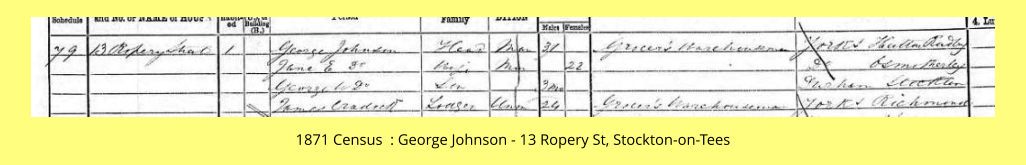 Schedule and No. of NAME of HOUSE ed Building (B.) Family Males Females 4. Lu
79 13 Ropery Street 1 George Johnson Head Mar 31 Grocer's Warehouseman Yorks Hutton Rudby
Jane E. Do Wife Mar 22 Do Osmotherley
George W. Do Son 3mo Durham Stockton
James Cradock Lodger Unm 24 Grocer's Warehouseman Yorks Richmond
1871 Census : George Johnson - 13 Ropery St, Stockton-on-Tees